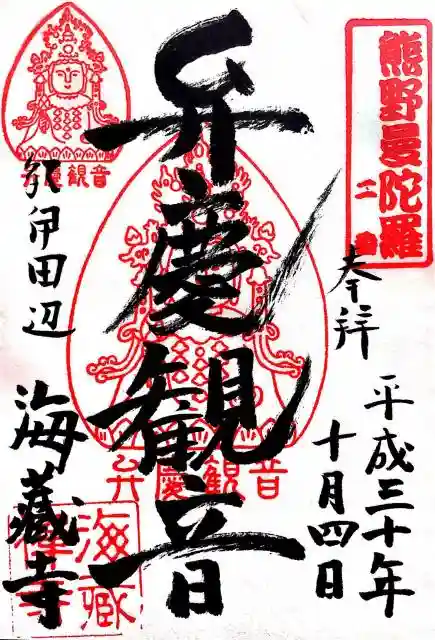 熊野曼陀羅
二番
奉拝
平成三十年
十月四日
弁慶観音
弁慶観音
弁慶観音
紀伊田辺
海蔵寺
海蔵